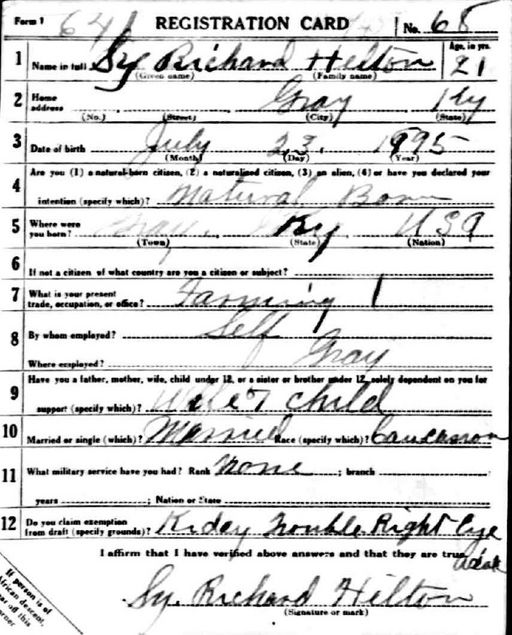 Form 1 641 REGISTRATION CARD No. 68
1 Name in full Sy Richard Hilton Age, in yrs. 21
(Given name) (Family name)
2 Home address Gray Ky
(No.) (Street) (City) (State)
3 Date of birth July 23, 1895
(Month) (Day) (Year)
4 Are you (1) a natural-born citizen, (2) a naturalized citizen, (3) an alien, (4) or have you declared your
intention (specify which)? Natural Born
5 Where were you born? Gray, Ky USA
(Town) (State) (Nation)
6 If not a citizen of what country are you a citizen or subject?
7 What is your present trade, occupation, or office? Farming 1
8 By whom employed? Self
Where employed? Gray
9 Have you a father, mother, wife, child under 12, or a sister or brother under 12, solely dependent on you for
support (specify which)? Wife & child
10 Married or single (which)? Married Race (specify which)? Caucasion
11 What military service have you had? Rank None ; branch
years ; Nation or State
12 Do you claim exemption from draft (specify grounds)? Kiday Trouble Right Eye
I affirm that I have verified above answers and that they are true.
Sy. Richard Hilton
(Signature or mark)
If person is of
African descent,
off this
corner